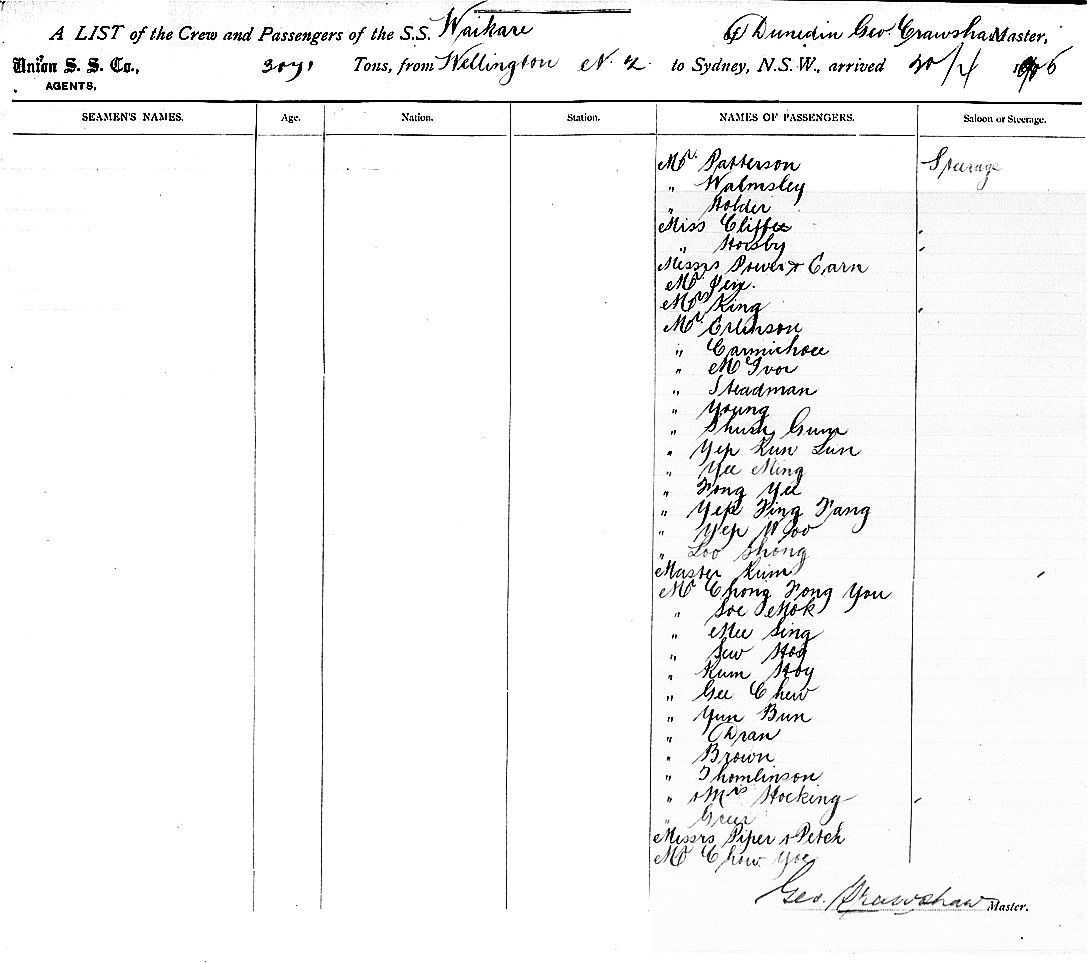 A LIST of the Crew and Passengers of the S.S. Waikare @ Dunedin Geo. Crawshaw Master,
Union S. S. Co., 3071 Tons, from Wellington N.Z. to Sydney, N.S.W., arrived 20/4 1906
AGENTS,
SEAMEN'S NAMES. Age. Nation. Station. NAMES OF PASSENGERS. Saloon or Steerage.
Mr. Patterson Steerage
" Walmsley
" Holder
Miss Cliffe
" Horsby
Messrs Power & Carn
Mr
Mrs King
Mr Orlinson
" Carmichael
" McIvor
" Steadman
" Young
" Gum
" Yep Kun Lun
" Yee Ming
" Fong Yee
" Yep Fing Fang
" Yep Woo
" Loo Shong
Master Kum
Mr Chong Fong You
" Soe Mok
" Mee Sing
" Sew Hoy
" Kum Hoy
" Gee Chew
" Yun Bun
" Oran
" Brown
" Thomlinson
" & Mrs Hocking
" Greer
Messrs Piper & Petch
Mr Chow Yoe
Geo. Crawshaw Master.